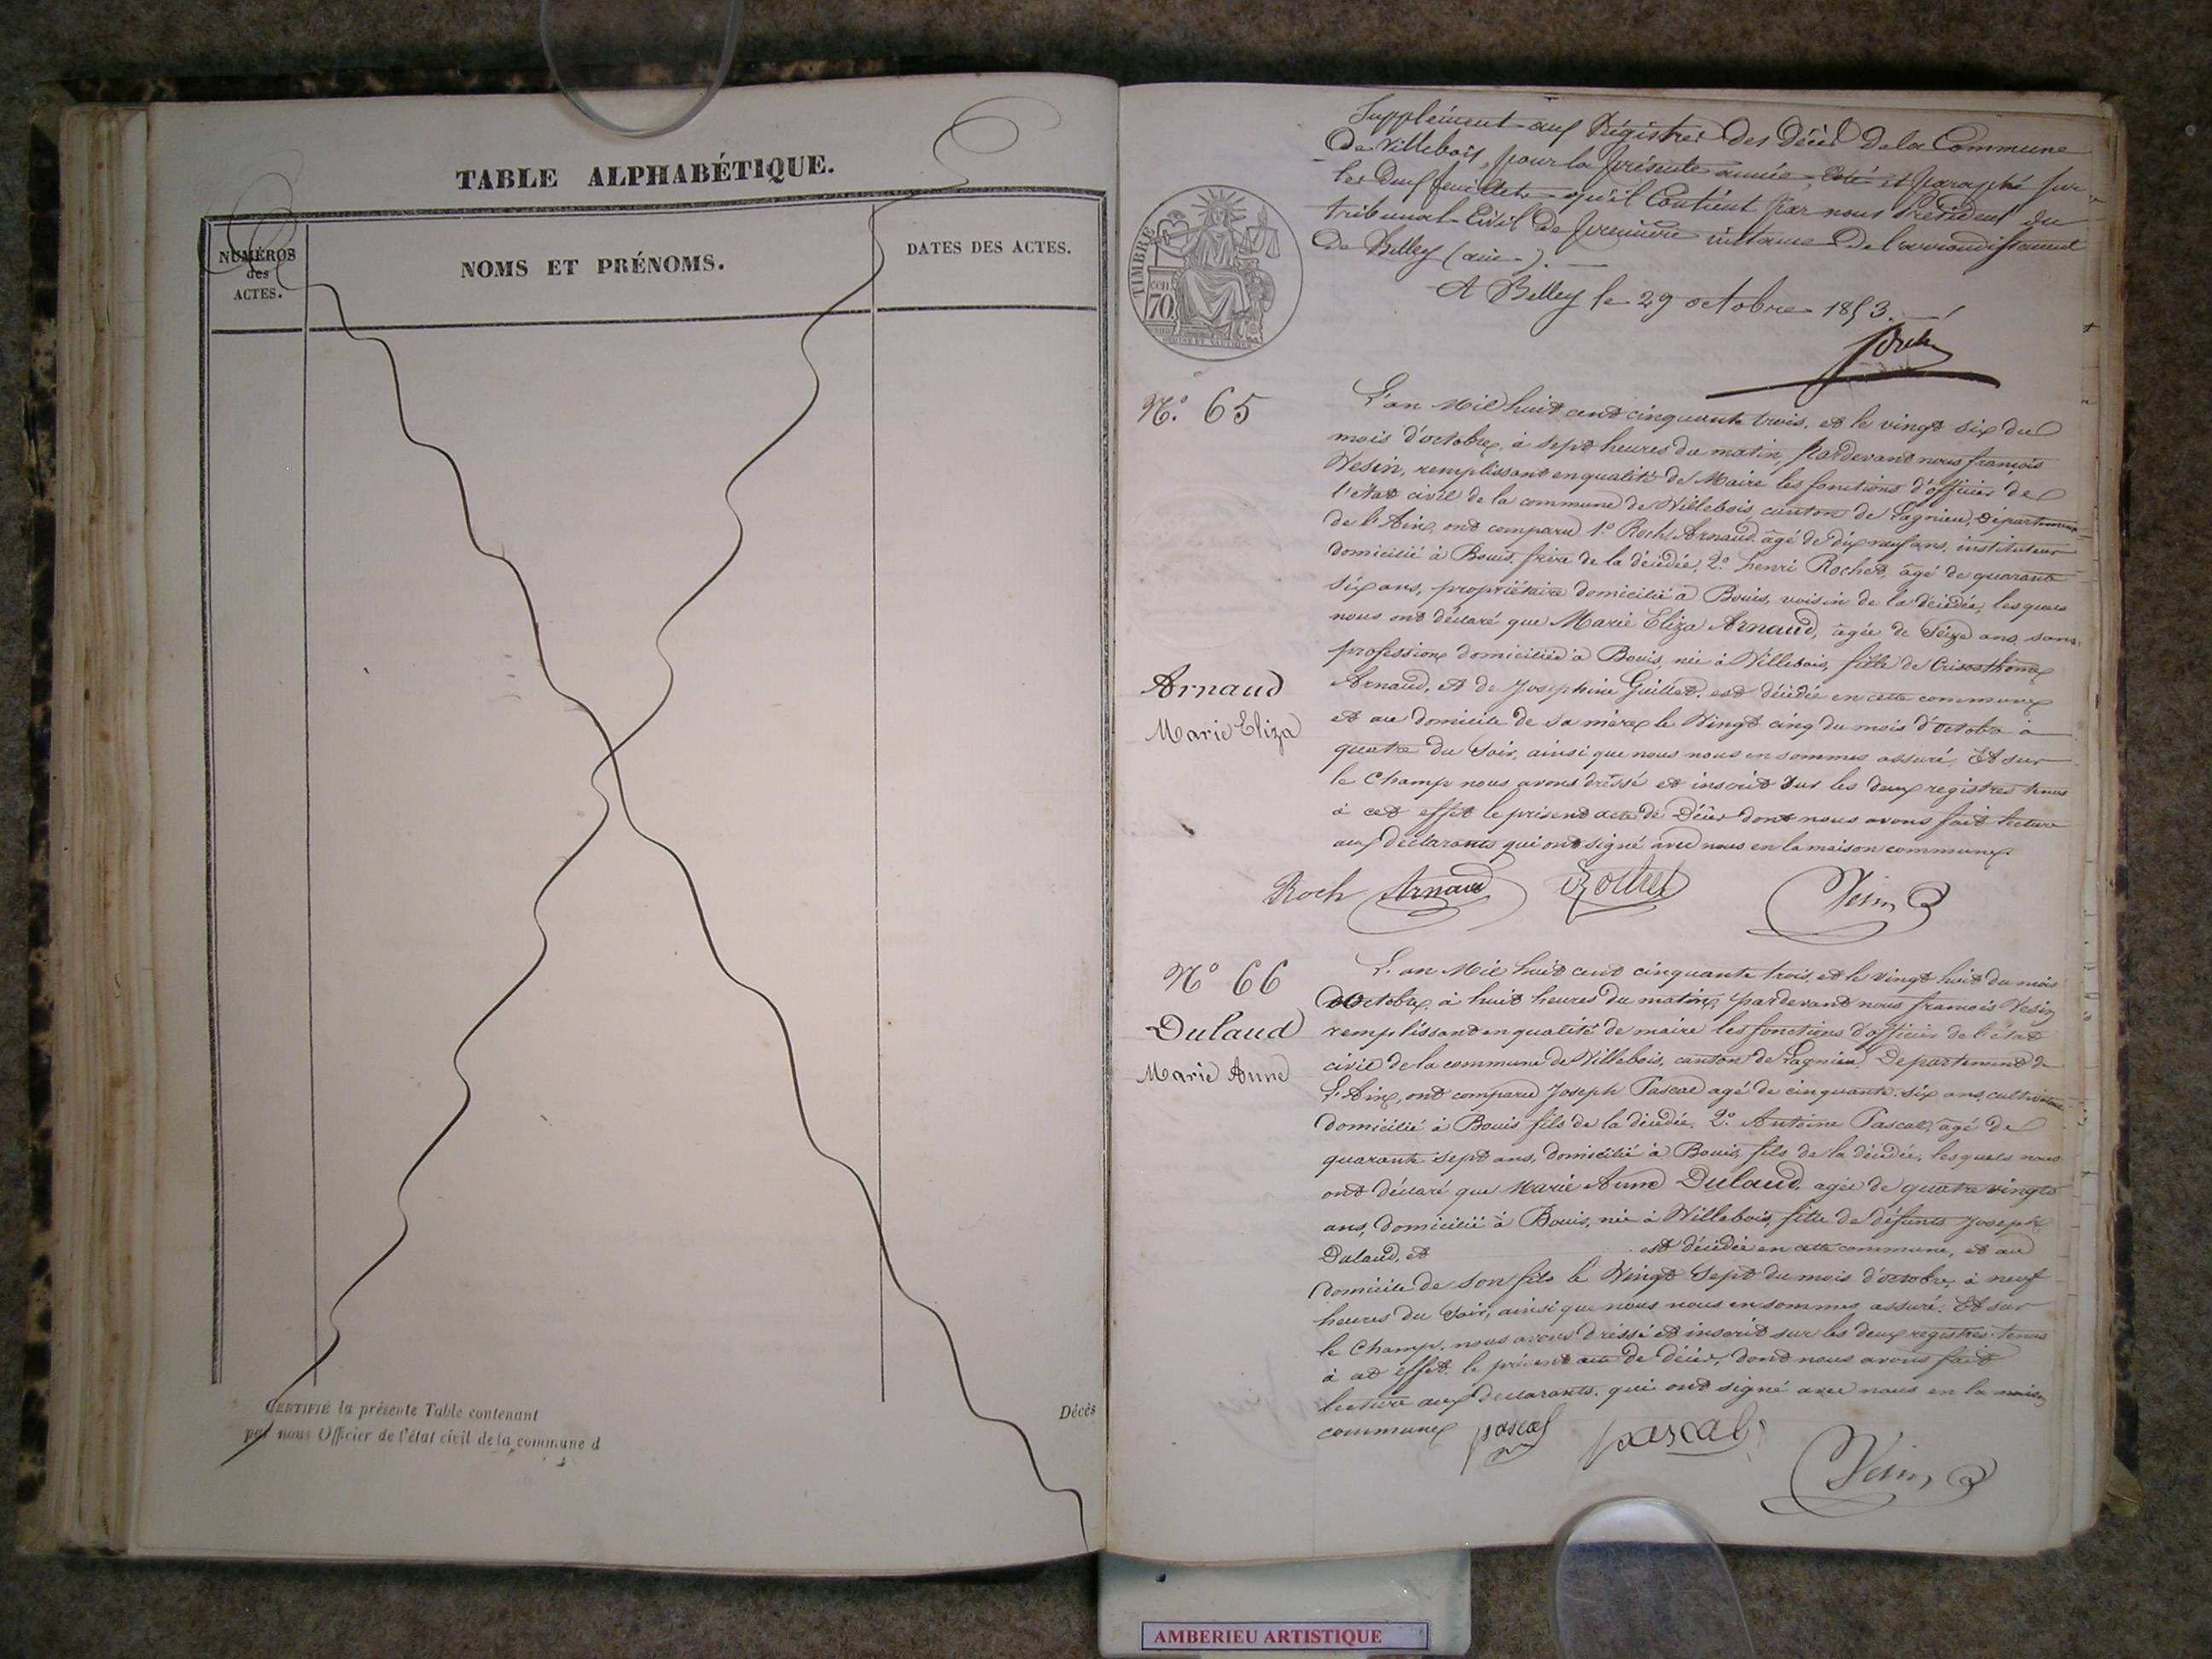 TABLE ALPHABÉTIQUE.
NUMÉROS
des
ACTES.
NOMS ET PRÉNOMS.
DATES DES ACTES.
CERTIFIÉ la présente Table contenant
Décès
par nous Officier de l'état civil de la commune d
Supplément aux Régistres des décès De la Commune
De Villebois, pour la présente année, Coté et paraphé sur
les Deux feuillets qu'il Contient par nous Président du
tribunal Civil De première instance De l'arrondissement
De Belley (ain).
A Belley le 29 octobre 1853.
TIMBRE
70
N.º 65
L'an Mil huit cent cinquante trois, et le vingt six du
mois d'octobre, à sept heures du matin, pardevant nous françois
Vesin, remplissant en qualité de Maire les fonctions d'officier de
l'état civil de la commune de Villebois, canton de Lagnieu, Département
de l'Ain, ont comparu 1.º Roch Arnaud, âgé de dix neuf ans, instituteur
domicilié à Bouis, frère de la décédée, 2.º henri Rochet, âgé de quarante
six ans, propriétaire domicilié à Bouis, voisin de la décédée, lesquels
nous ont déclaré que Marie Eliza Arnaud, âgée de Seize ans, sans
profession domiciliée à Bouis, née à Villebois, fille de Crisosthome
Arnaud, et de Josephine Guillet, est décédée en cette commune
Arnaud
Marie Eliza
et au domicile de sa mère le Vingt cinq du mois d'octobre à
quatre du Soir, ainsi que nous nous en sommes assuré. Et sur
le Champ nous avons dréssé et inscrit sur les deux registres tenus
à cet effet le présent acte de Décès dont nous avons fait lecture
aux déclarants qui ont signé avec nous en la maison commune.
Roch Arnaud Rochet Vesin
N.º 66
Dulaud
Marie Anne
L'an Mil huit cent cinquante trois, et le vingt huit du mois
d'octobre, à huit heures du matin, pardevant nous francois Vesin
remplissant en qualité de maire les fonctions d'officier de l'état
civil de la commune de Villebois, canton de Lagnieu, Departement de
L'Ain, ont comparu Joseph Pascal agé de cinquante six ans, cultivateur
domicilié à Bouis fils de la décédée, 2.º Antoine Pascal, agé de
quarante sept ans, domicilié à Bouis, fils de la décédée, lesquels nous
ont déclaré que Marie Anne Dulaud, agée de quatre vingts
ans, domicilié à Bouis, née à Villebois, fille de défunts Joseph
Dulaud, et est décédée en cette commune, et au
domicile de son fils le Vingt Sept du mois d'octobre, à neuf
heures du Soir, ainsi que nous nous en sommes assuré. Et sur
le Champ, nous avons dréssé et inscrit sur les deux registres tenus
à cet effet, le présent acte de décès, dont nous avons fait
lecture aux declarants, qui ont signé avec nous en la maison
commune pascal pascal Vesin
AMBERIEU ARTISTIQUE